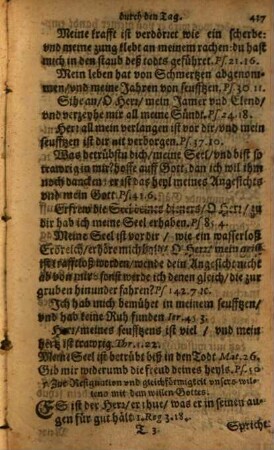 durch den Tag. 437
Meine krafft ist verdörret wie ein scherbe:
vnd meine zung klebt an meinem rachen: du hast
mich in den staub deß todts geführet. Ps. 21. 16.
Mein leben hat von Schmertzen abgenom-
men/vnd meine Jahren von seufftzen. 30. 11
Sihe an/O Herr/ mein Jamer vnd Elend/
vnd verzeyhe mir all meine Sündt. Ps. 24. 18.
Herr all mein verlangen ist vor dir/vnd mein
seufftzen ist dir nit verborgen. Ps. 37. 10.
Was betrübstu dich/meine Seel/vnd bist so
trawrig in mir? hoffe auff Gott, dan ich wil ihm
noch dancken: er ist das heyl meines Angesichts
vnd mein Gott. Ps. 41. 6.
Erfrew die Seel deines dieners/O Herr/ zu
dir hab ich meine Seel erhaben. Ps. 85. 4.
Meine Seel ist vor dir / wie ein wasserloß
Erdreich/erhöre mich bald/O Herr/ mein
ist rafftloß worden/wende dein Angesicht nicht
ab von mir/sonst werde ich denen gleich/die zur
gruben hinunder fahren? Ps. 142. 7.
Ich hab mich bemühet in meinem seufftzen/
vnd hab keine Ruh funden Ier. 45 3.
Herr/meines seufftzens ist viel / vnd mein
hertz ist trawrig. Thr. 1. 22.
Meine Seel ist betrübt biß in den Todt Mat. 26.
Gib mir widerumb die freud deines heyls. Ps. 50.
2. Zur Resignation vnd gleichförmigkeit vnsers wil-
lens mit dem willen Gottes.
ES ist der Herr/ er thue/ was er in seinen au-
gen für gut hält 1. Reg 3. 18.
T 3. Spriche